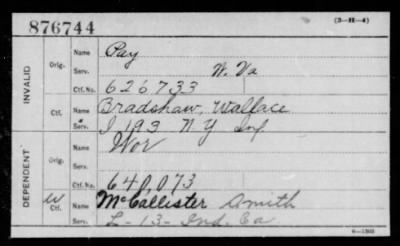 876744 (3-H-4)
INVALID
Orig. Name Pay
Serv. W. Va
Ctf. No. 626733
Ctf. Name Bradshaw, Wallace
Serv. I 193 N Y Inf
DEPENDENT
Orig. Name Wor
Serv.
Ctf. No. 640,073
W Ctf. Name McCallister Smith
Serv. L-13-Ind. Ca